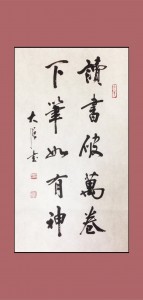 讀書破萬卷
下筆如有神
大雁書